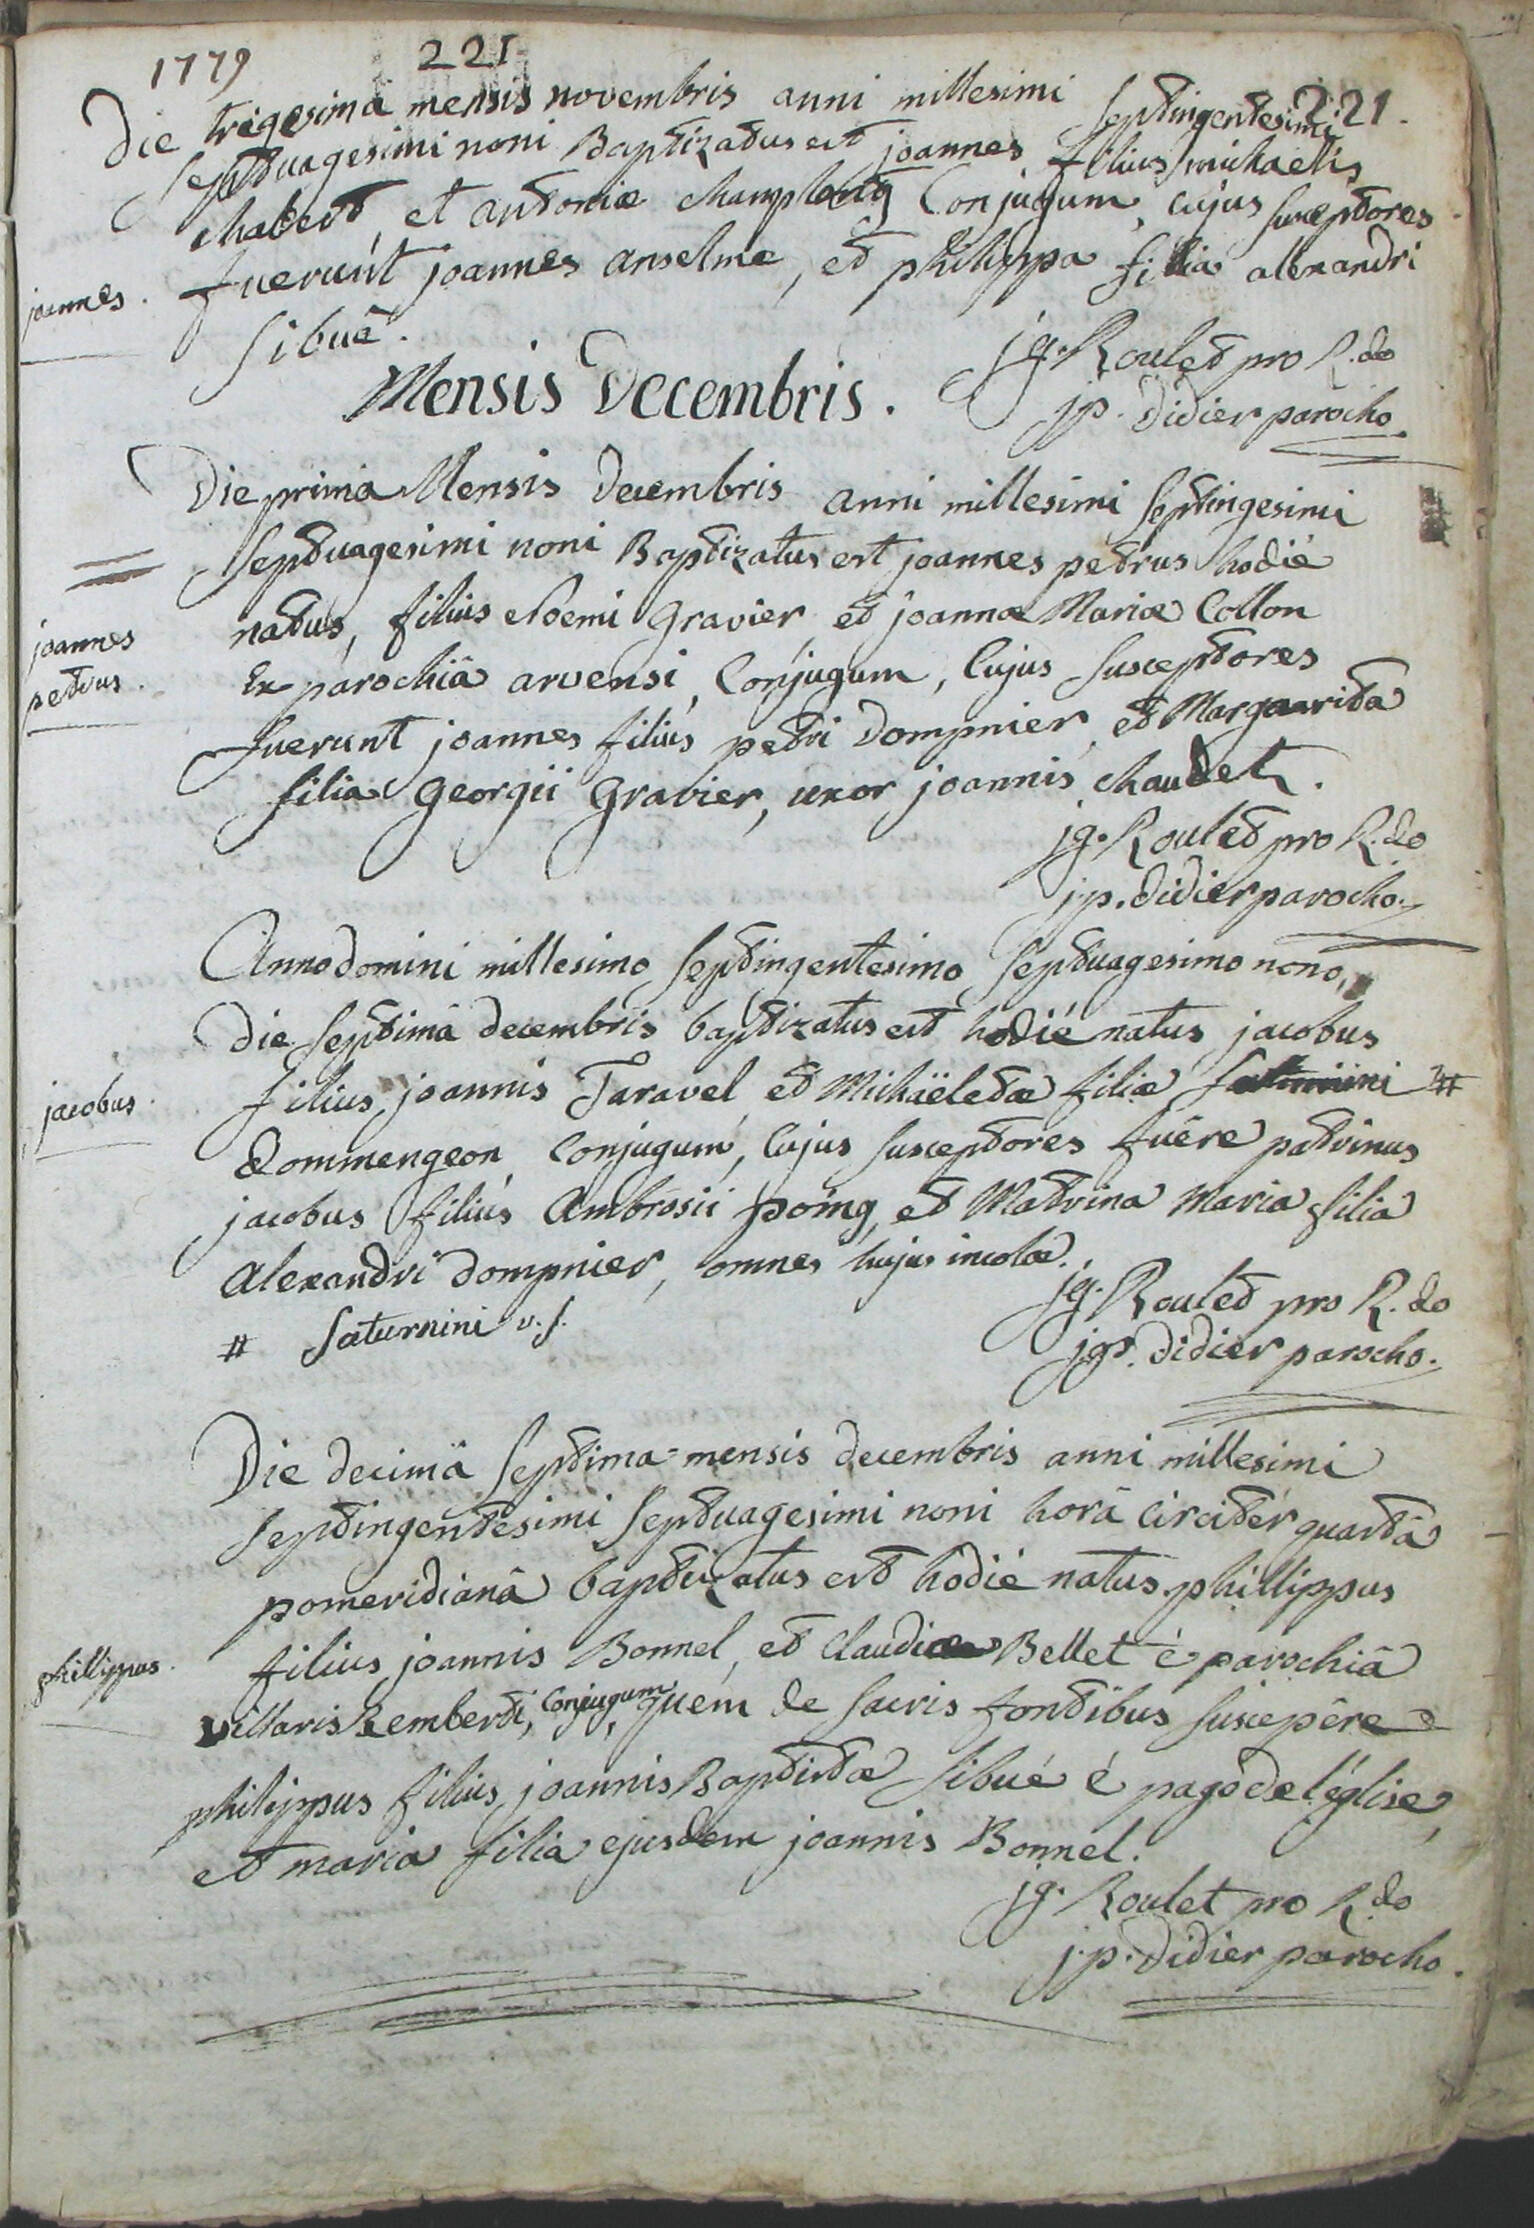 1779 221
221.
Die trigesima mensis novembris anni millesimi septingentesimi
septuagesimi noni Baptizatus est joannes filius michaelis
chabert, et antoniæ champlong Conjugum, cujus susceptores
joannes. fuerunt joannes anselme, et philippa filia alexandri
sibuë.
jg. Roulet pro R.do
jp. Didier parocho.
Mensis Decembris.
Die prima Mensis Decembris anni millesimi septingesimi
septuagesimi noni Baptizatus est joannes petrus hodié
joannes petrus. natus, filius Noemi Gravier et joannæ Mariæ Collon
Ex parochiâ arvensi, Conjugum, Cujus susceptores
fuerunt joannes filius petri Dompnier, et Margaarita
filia Georgii Gravier, uxor joannis chaudet.
jg. Roulet pro R.do
j.p. Didier parocho.
Anno domini millesimo septingentesimo septuagesimo nono,
Die septimâ decembris baptizatus est hodié natus jacobus
jacobus. filius joannis Taravel et Michaëletæ filiæ #
Dommengeon Conjugum, Cujus susceptores fuêre patrinus
jacobus filius Ambrosii poing, et Matrina Maria filia
Alexandri Dompnier, omnes hujus incolæ.
# Saturnini v.s.
jg. Roulet pro R.do
jp. Didier parocho.
Die decimâ septima mensis decembris anni millesimi
septingentesimi septuagesimi noni horâ circitér quartâ
pomeridianâ baptizatus est hodié natus phillippus
phillippus. filius joannis Bonnel, et Claudiæ Bellet é parochiâ
villaris Remberti, Conjugum, quem de sacris fontibus suscepêre
philippus filius joannis Baptistæ sibué é pago de l'église,
et maria filia ejusdem joannis Bonnel.
jg. Roulet pro R.do
j.p. Didier parocho.